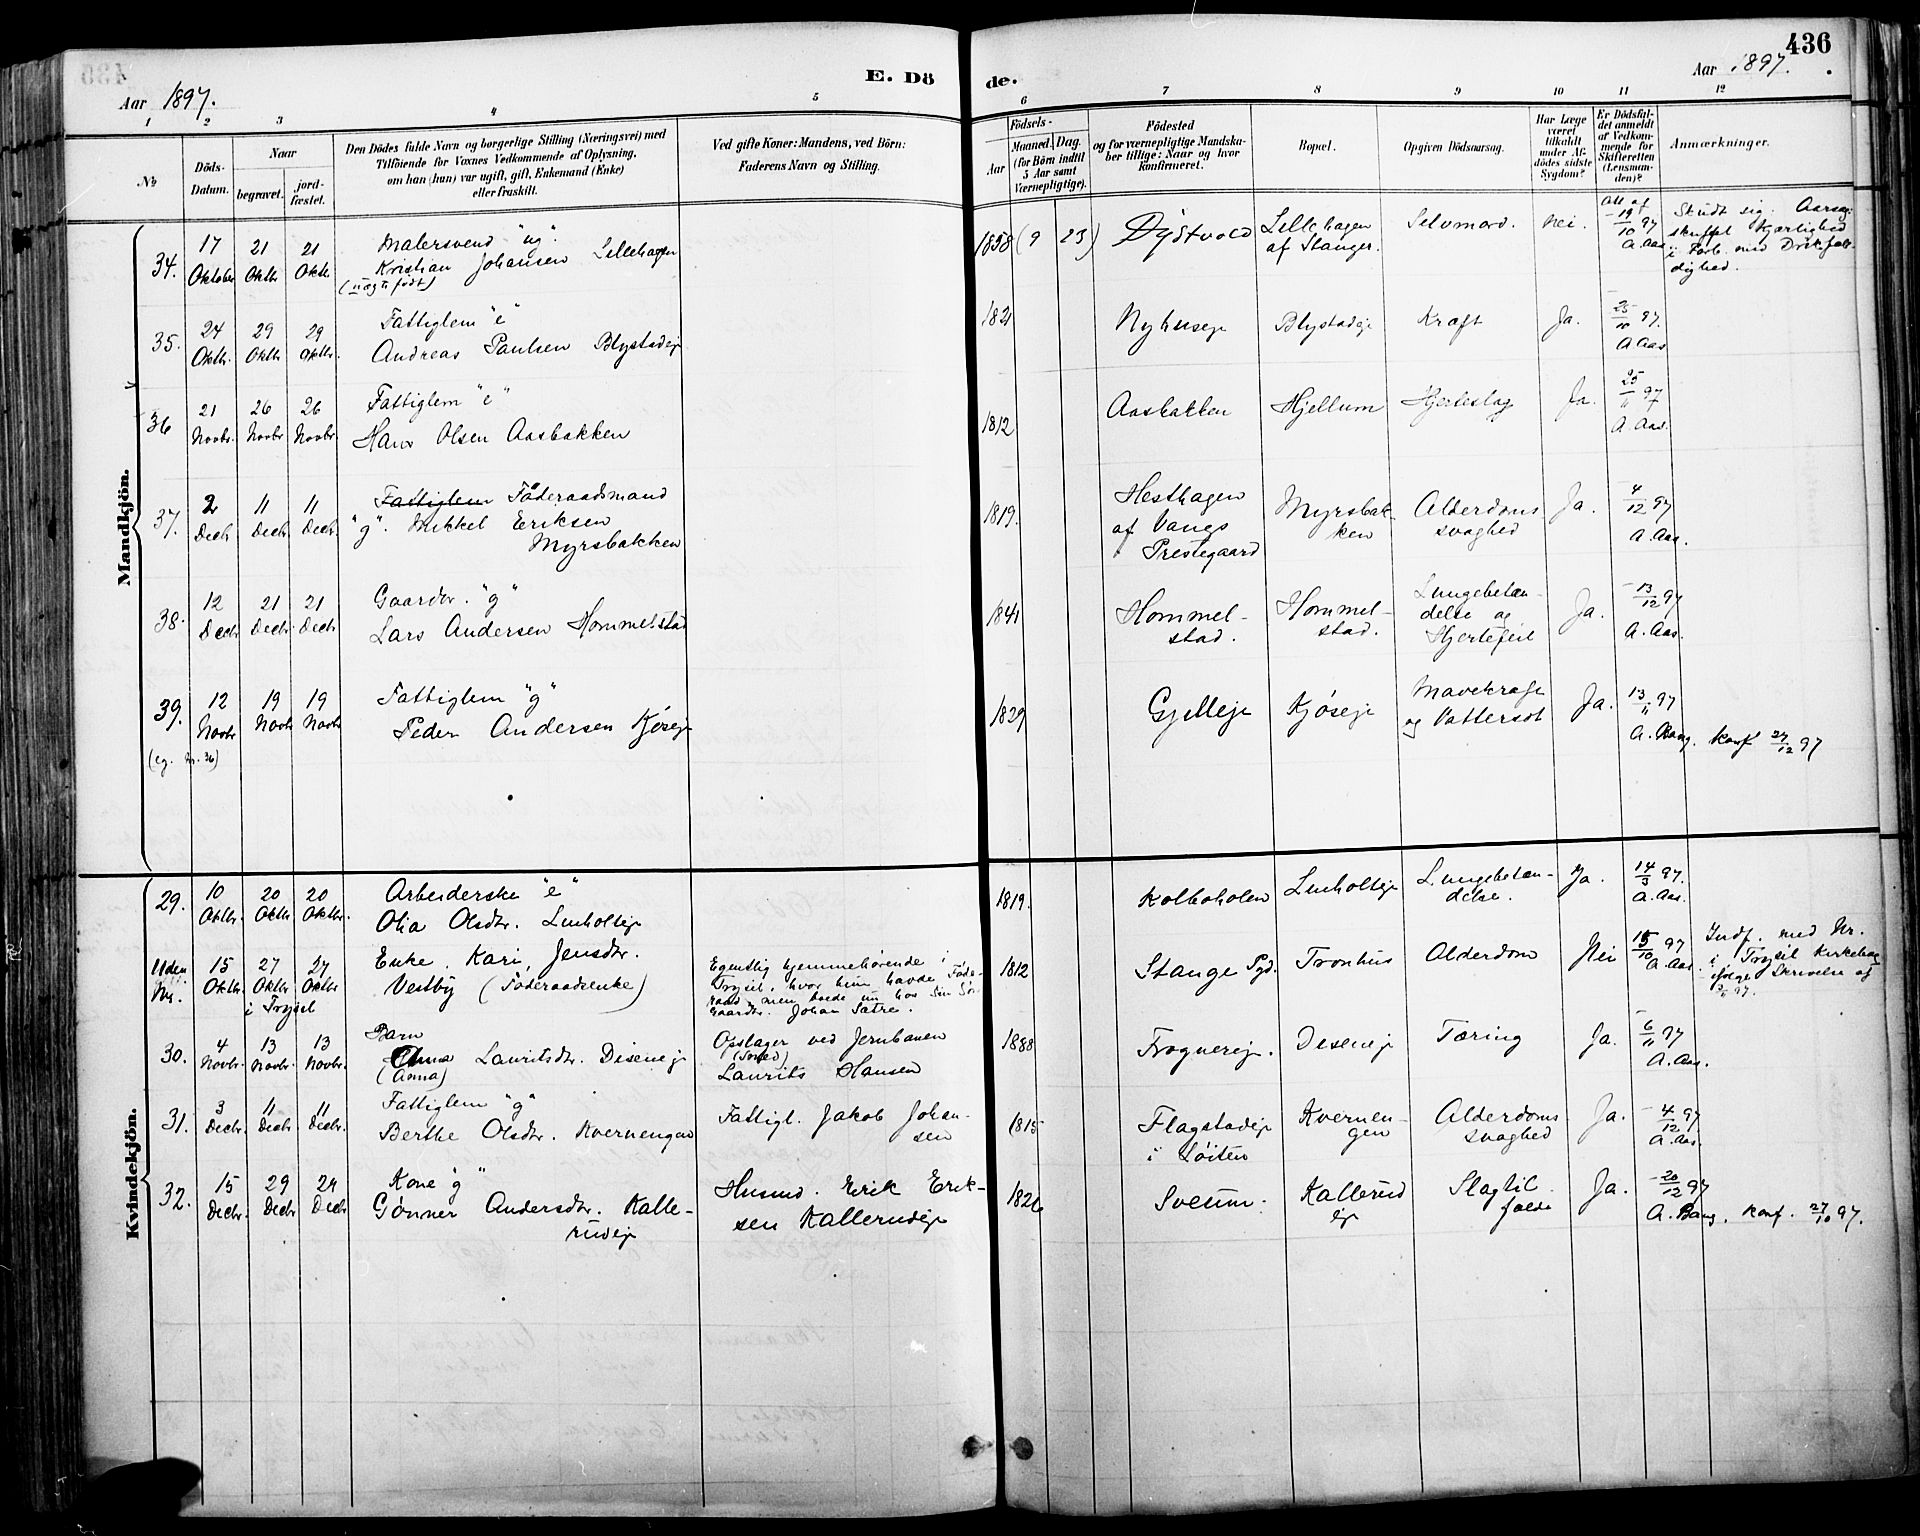 436
Aar 1897.
E. Dö
de.
Aar 1897.
1 2 3 4 5 6 7 8 9 10 11 12
No
Döds-Datum.
Naar
begravet.
jord-fæstet.
Den Dödes fulde Navn og borgerlige Stilling (Næringsvei) med
Tilföiende for Voxnes Vedkommende af Oplysning,
om han (hun) var ugift, gift, Enkemand (Enke)
eller fraskilt.
Ved gifte Koner: Mandens, ved Börn:
Faderens Navn og Stilling.
Födsels-
Aar
Maaned. Dag.
(for Börn indtil
5 Aar samt
Værnepligtige).
Födested
og for værnepligtige Mandska-
ber tillige: Naar og hvor
konfirmeret.
Bopæl.
Opgiven Dödsaarsag.
Har Læge
været
tilkaldt
under Af-
dödes sidste
Sygdom?
Er Dödsfal-
det anmeldt
af Vedkom-
mende for
Skifteretten
(Lensman-
den)?
Anmærkninger.
Mandkjön.
34. 17 Oktober 21 Oktb 21 Oktb.
Malersvend "ug"
Kristian Johansen Lillehagen
(uægte født)
1858 (9 23) Dystvold
Lillehagen
af Stanger.
Selvmord. Nei.
Att af
19/10 97
A. Aas
Skudt sig. Aarsag:
skuffet Kjærlighed
i Forb. med Drikfæl-
dighed.
35. 24 Oktb. 29 Oktb 29 Oktbr.
Fattiglem "e"
Andreas Paulsen Blystadeje
1821 Nyhuseje Blystadeje Kræft Ja.
25/10 97.
A. Aas
36 21 Novbr. 26 Novbr 26 Novbr.
Fattiglem "e"
Hans Olsen Aasbakken
1812 Aasbakken Hjellum Hjerteslag Ja.
25/11 97
A. Aas.
37. 2 Decbr 11 Decbr. 11 Decbr.
Fattiglem Föderaadsmand
"g". Mikkel Eriksen
Myrsbakken
1819. Hesthagen
af Vangs
Prestegaard
Myrsbak-
ken
Alderdoms
svaghed
Ja.
4/12 97
A. Aas.
38. 12 Decbr 21 Decbr. 21 Decbr
Gaardbr. "g"
Lars Andersen Hommelstad
1841 Hommel-
stad.
Hommel-
stad.
Lungebetæn-
delse og
Hjertefeil
Ja.
13/12 97
A. Aas.
39. 12 Novbr 19 Novbr 19 Novbr
(eg. Nr. 36)
Fattiglem "g"
Peder Andersen Kjöseje
1829 Gjelleje Kjøseje
Mavekræft
og Vattersot
Ja.
13/11 97
A. Bang. Konf 27/12 97
Kvindekjön.
29. 10 Oktbr. 20 Oktbr 20 Oktbr.
Arbeiderske "e"
Olia Olsdtr. Linholteje
1819. Kolboholen Linholteje
Lungebetæn-
delse.
Ja.
14/3 97.
A. Aas.
Uden
Nr.
15 Oktbr. 27 Oktbr 27 Oktbr
i Trysil
Enke. Kari Jensdtr.
Vestby (Föderaadsenke)
Egentlig hjemmehörende i
Trysil, hvor hun havde Føde-
raad, men boede nu hos Sin Sön
Gaardbr. Johan Sætre.
1812 Stange Sgd. Tronhus Alderdom Nei
15/10 97
A. Aas.
Indf. med Nr.
i Trysil Kirkebog
ifølge Skrivelse af
3/11 97.
30. 4 Novbr. 13 Novbr. 13 Novbr.
Barn
Anna Lauritsdtr. Diseneje
(Anna)
Opslager ved Jernbanen
Laurits Hansen
1888 Frognereje. Diseneje Tæring Ja.
6/11 97
A. Aas.
31. 3 Decbr. 11 Decbr. 11 Decbr.
Fattiglem "g"
Berthe Olsdtr. Kvernengen
Fattigl. Jakob Johan-
sen
1815 Flagstadeje
i Löiten
Kvernen-
gen
Alderdoms
svaghed
Ja.
4/12 97
A. Aas.
32. 15 Decbr. 29 Decbr 29 Decbr
Kone "g"
Gönner Andersdtr. Kalle-
rudeje
Husmd. Erik Erik-
sen Kallerudeje
1826 Sveum. Kallerud
eje
Slagtil
fælde
Ja.
20/12 97
A. Bang. Konf. 27/10 97.